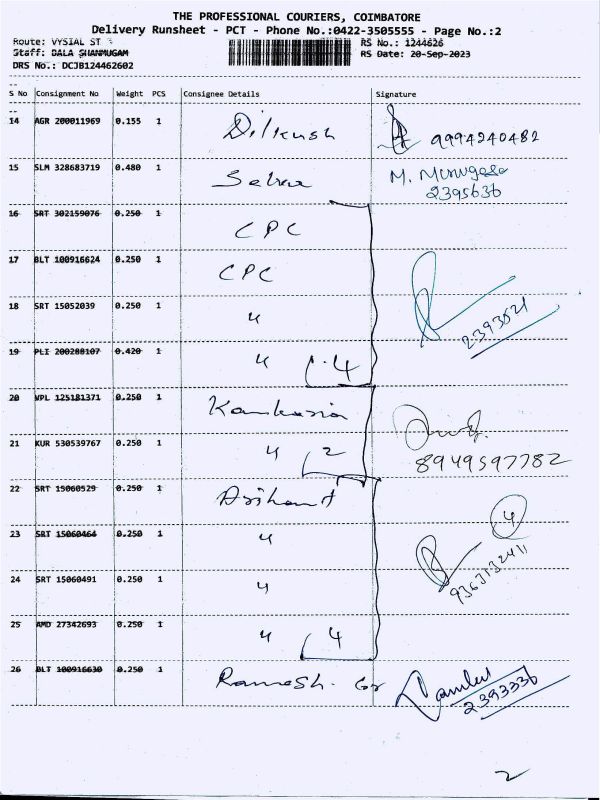 THE PROFESSIONAL COURIERS, COIMBATORE
Delivery Runsheet - PCT - Phone No.:0422-3505555 - Page No.:2
Route: VYSIAL ST
RS No.: 1244626
Staff: BALA SHANMUGAM
RS Date: 20-Sep-2023
DRS No.: DCJB124462602
S No Consignment No Weight PCS Consignee Details Signature
14 AGR 200011969 0.155 1 Dilkush 9994240482
15 SLM 328683719 0.480 1 M. Murugesa
2395636
16 SRT 302159076 0.250 1 CPC
17 BLT 100916624 0.250 1 CPC
18 SRT 15052039 0.250 1 " 2393521
19 PLI 200288107 0.420 1 " 4
20 VPL 125181371 0.250 1 Kankaria
21 KUR 530539767 0.250 1 " 2 8949597782
22 SRT 15060529 0.250 1 Arihant 4
23 SRT 15060464 0.250 1 "
24 SRT 15060491 0.250 1 " 9363132411
25 AMD 27342693 0.250 1 " 4
26 BLT 100916630 0.250 1 Ramesh. Gr
2393336
2